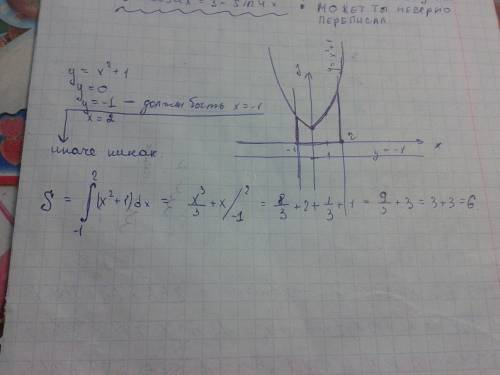 = 3 - sin 4x
• МОЖЕТ ТЫ НЕВЕРНО
ПЕРЕПИСАЛ
y = x² + 1
y = 0
y = -1 — должен быть x = -1
x = 2
иначе никак
y = x² + 1
y
-1
1
2
x
y = -1
S = ∫₋₁² (x² + 1) dx = x³/3 + x /₋₁² = 8/3 + 2 + 1/3 + 1 = 9/3 + 3 = 3 + 3 = 6